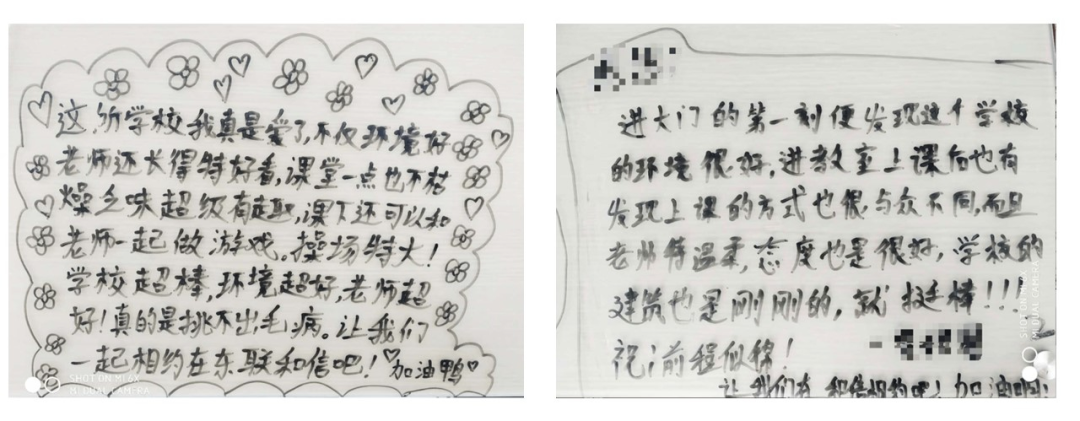 这所学校我真是爱了,不仅环境好
老师还长得特好看,课堂一点也不枯
燥乏味超级有趣,课下还可以和
老师一起做游戏。操场特大!
学校超棒,环境超好,老师超
好!真的是挑不出毛病。让我们
一起相约在东联和信吧!加油鸭
SHOT ON MI 6X
MI DUAL CAMERA
进大门的第一刻便发现这个学校
的环境很好,进教室上课后也有
发现上课的方式也很与众不同,而且
老师特温柔,态度也是很好,学校的
建筑也是刚刚的,就挺棒!!!
祝:前程似锦!
让我们在和信相约吧!加油啊!